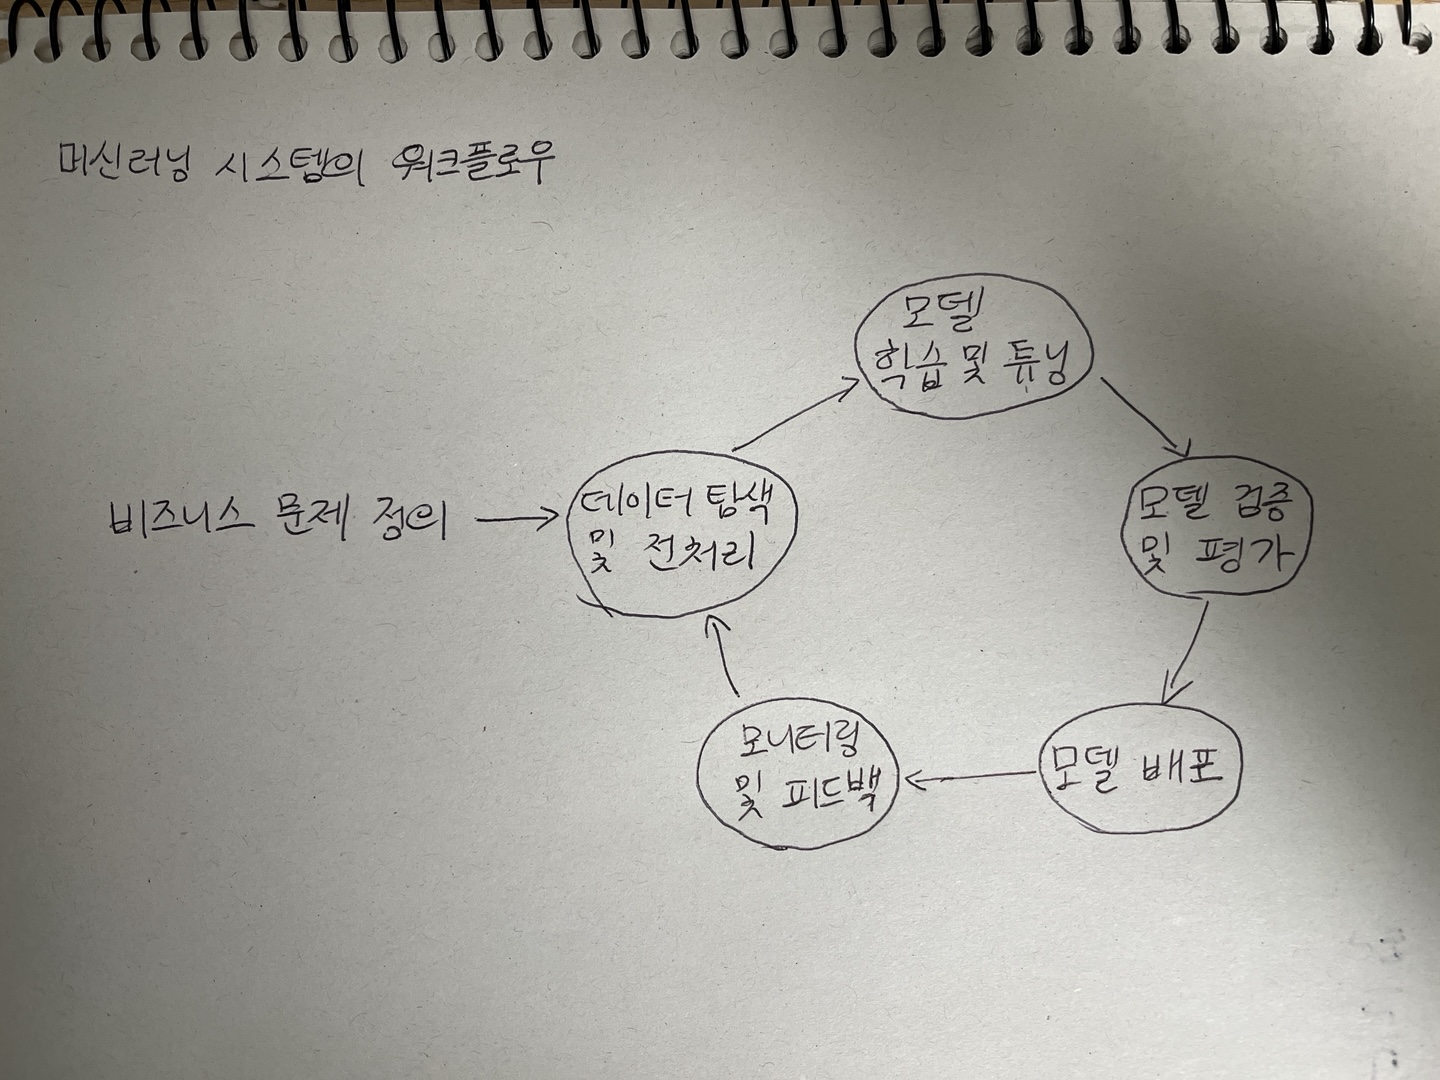 머신러닝 시스템의 워크플로우
모델
학습 및 튜닝
비즈니스 문제 정의
데이터 탐색
및 전처리
모델 검증
및 평가
모니터링
및 피드백
모델 배포